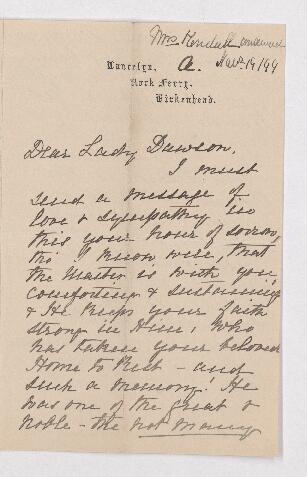 Mrs Kendall answered
A. Nov 19/99
Lancelyn,
Rock Ferry,
Birkenhead.
Dear Lady Dawson,
I must
send a message of
love & sympathy in
this your hour of sorrow,
tho' I know well, that
the Master is with you
comforting & sustaining
& He keeps your faith
strong in Him, who
has taken your beloved
Home to Rest - and
such a memory! He
was one of the great &
noble - the not many